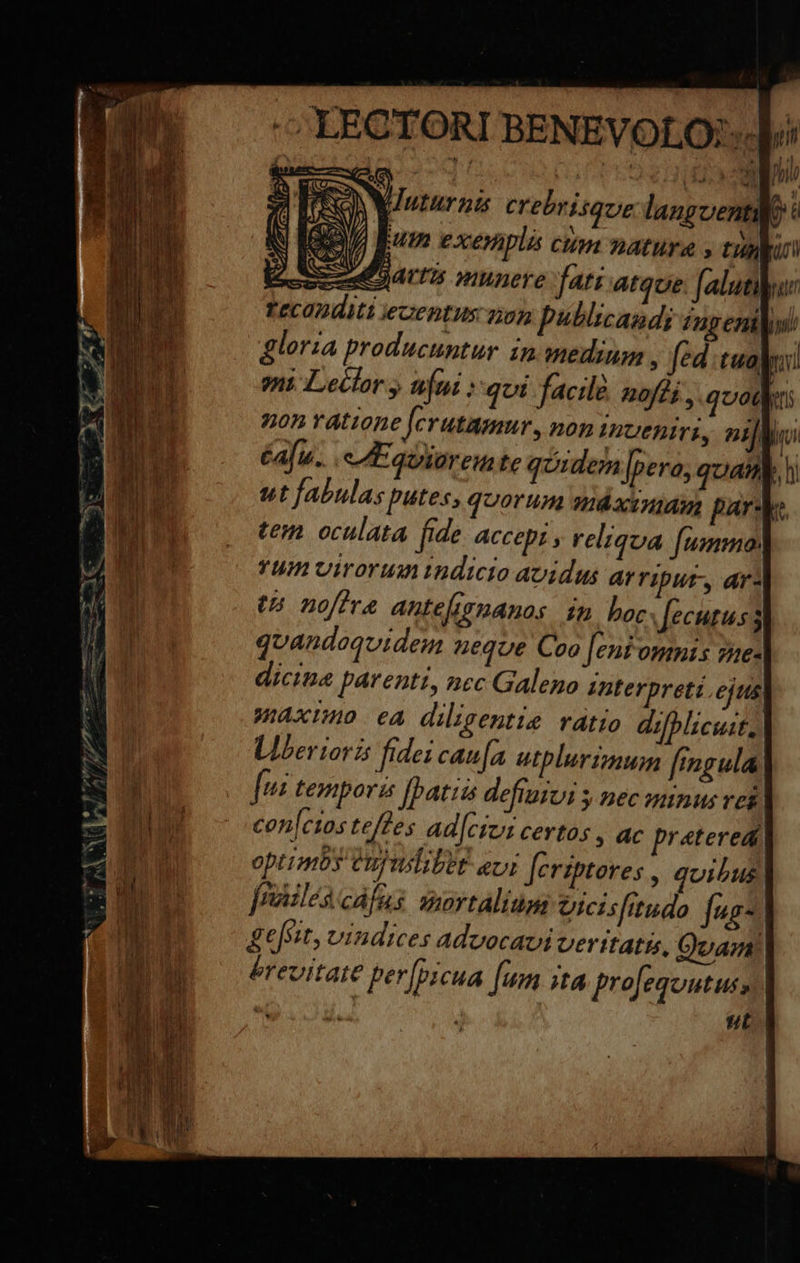 LECTORI BENEVOLO:
Iuturnis crebrisqve langventi
um exemplis cùm naturæ, tùm
artis munere fati atque salutis
reconditi eventus non publicandi ingenii
gloriâ producuntur in medium, sed tuo
mi Lector, usui; qvi facilè nosti, qvod
non ratione scrutamur, non inveniri, nisi
casu. Æqviorem te qvidem spero, qvam
ut fabulas putes, qvorum máximam par-
tem oculata fide accepi, reliqva summo
rum virorum indicio avidus arripui, ar-
tis nostræ antesignanos in hoc secutus;
qvandoqvidem neqve Coo seni omnis me-
dicinæ parenti, nec Galeno interpreti ejus
maximo ea diligentiæ ratio displicuit.
Uberioris fidei causa utplurimum singula
sui temporis spatiis definivi, nec minus rei
conscios testes adscivi certos, ac præterea
optimos cujuslibet ævi scriptores, qvibus
similes casus mortalium vicissitudo sug-
gessit, vindices advocavi veritatis. Qvam
brevitate perspicua sum ita proseqvutus,
ut